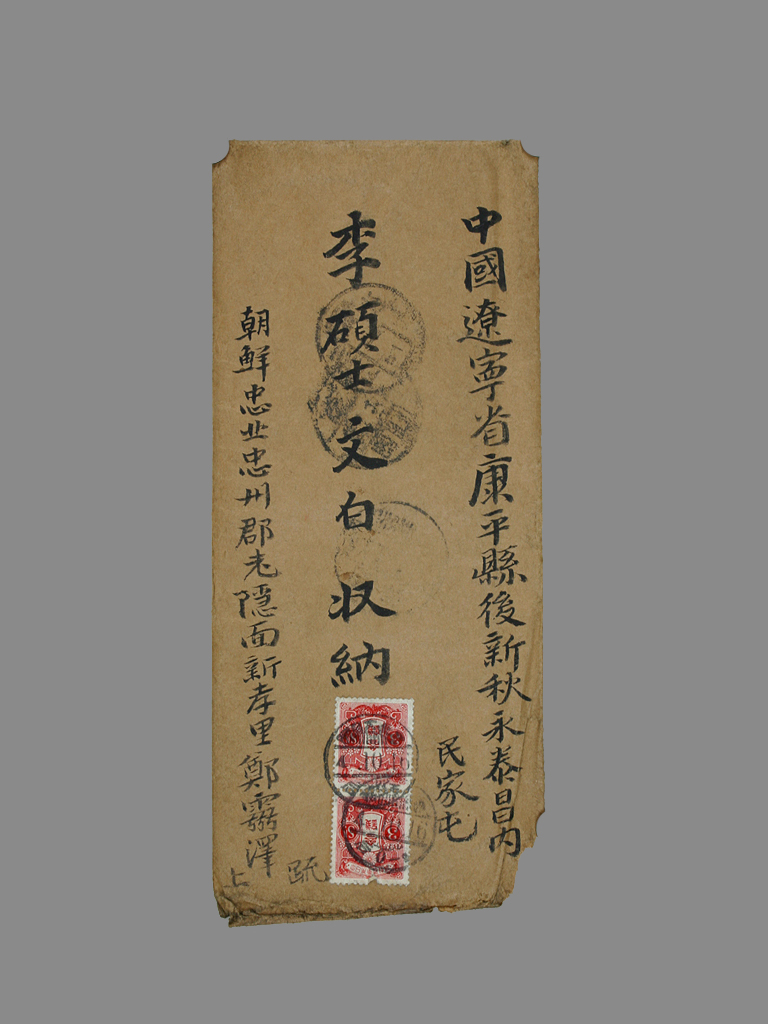 中國遼寧省康平縣後新秋永泰昌内
民家屯
李碩士文白収納
朝鮮忠北忠州郡老隠面新孝里鄭霱澤
疏
上